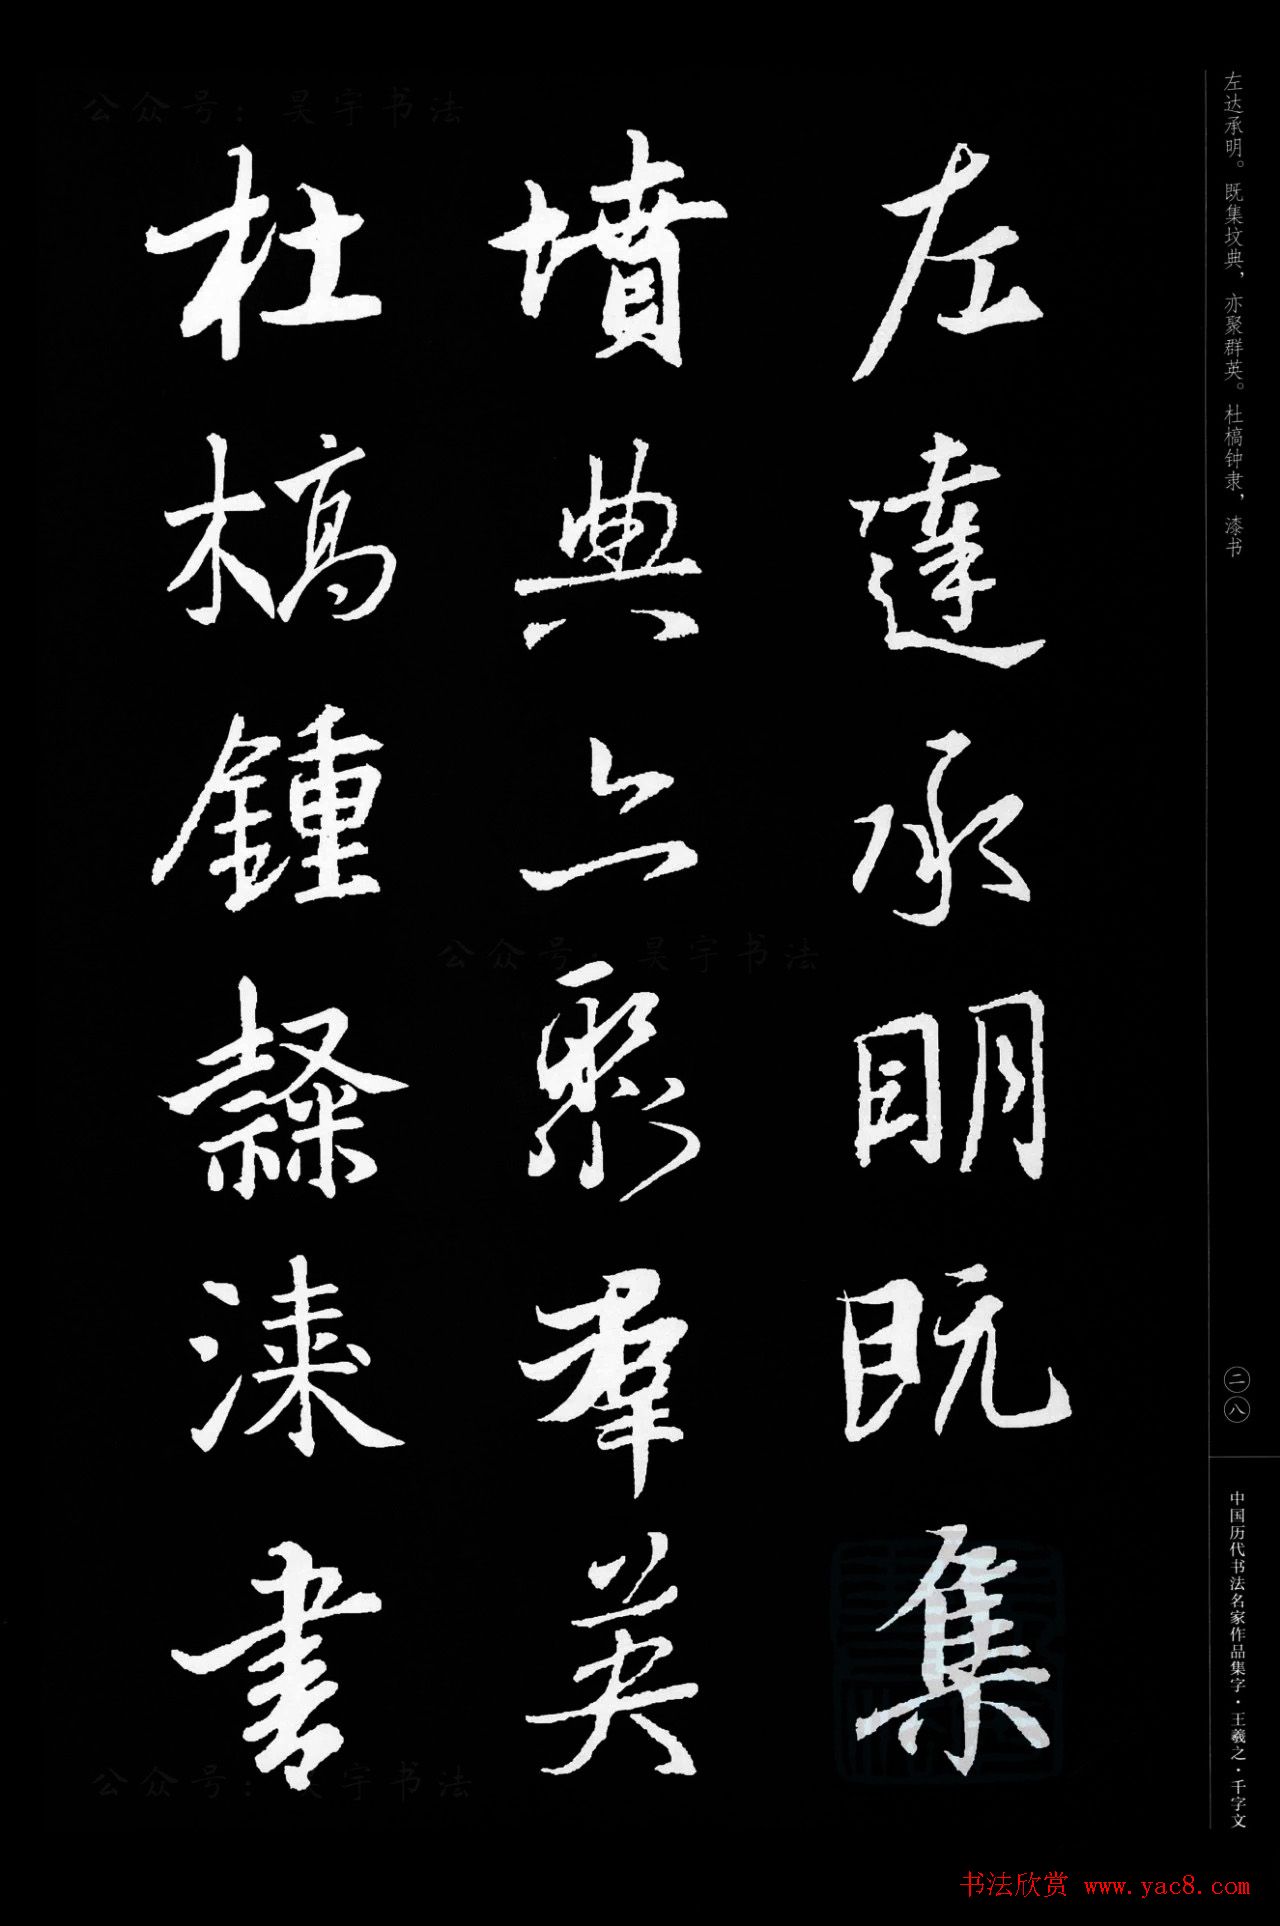 左達承明既集
墳典亦聚群英
杜槁鍾隸漆書
左达承明。既集坟典，亦聚群英。杜槁钟隶，漆书
二八
中国历代书法名家作品集字·王羲之·千字文
公众号：昊宇书法
公众号：昊宇书法
公众号：昊宇书法
书法欣赏 www.yac8.com